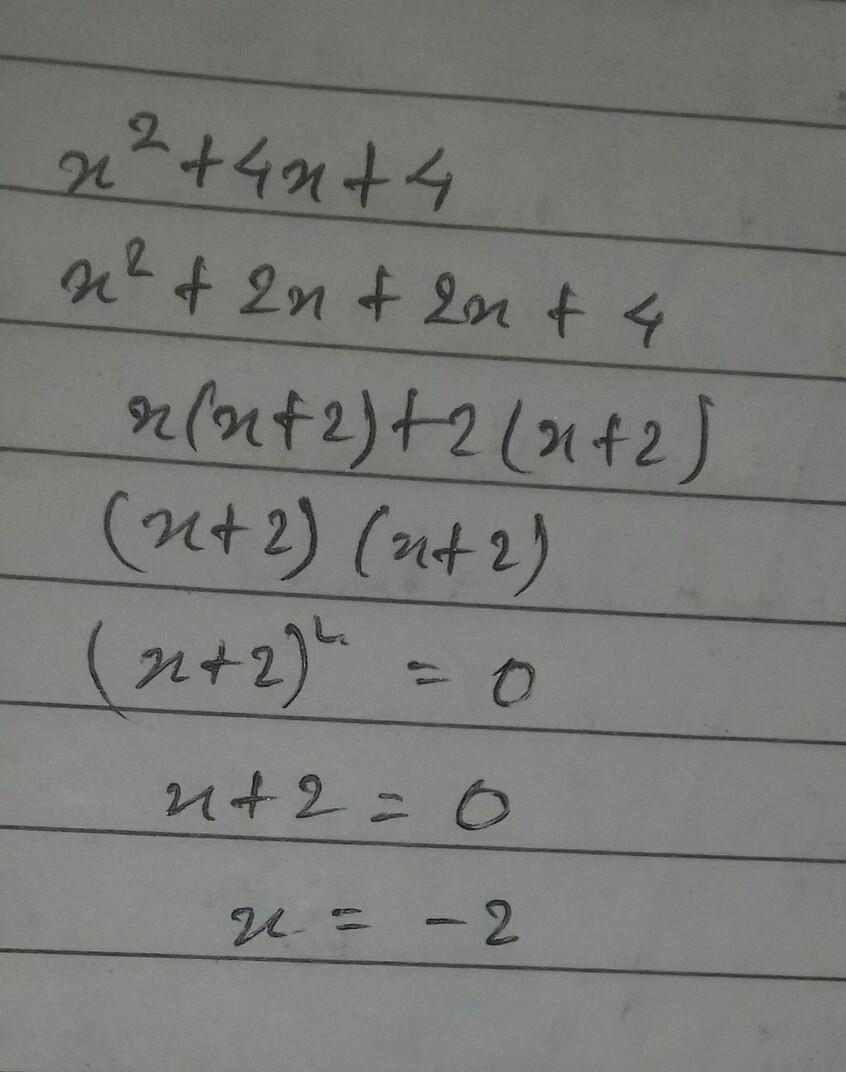 x² + 4x + 4
x² + 2x + 2x + 4
x(x+2)+2(x+2)
(x+2) (x+2)
(x+2)² = 0
x+2 = 0
x = -2